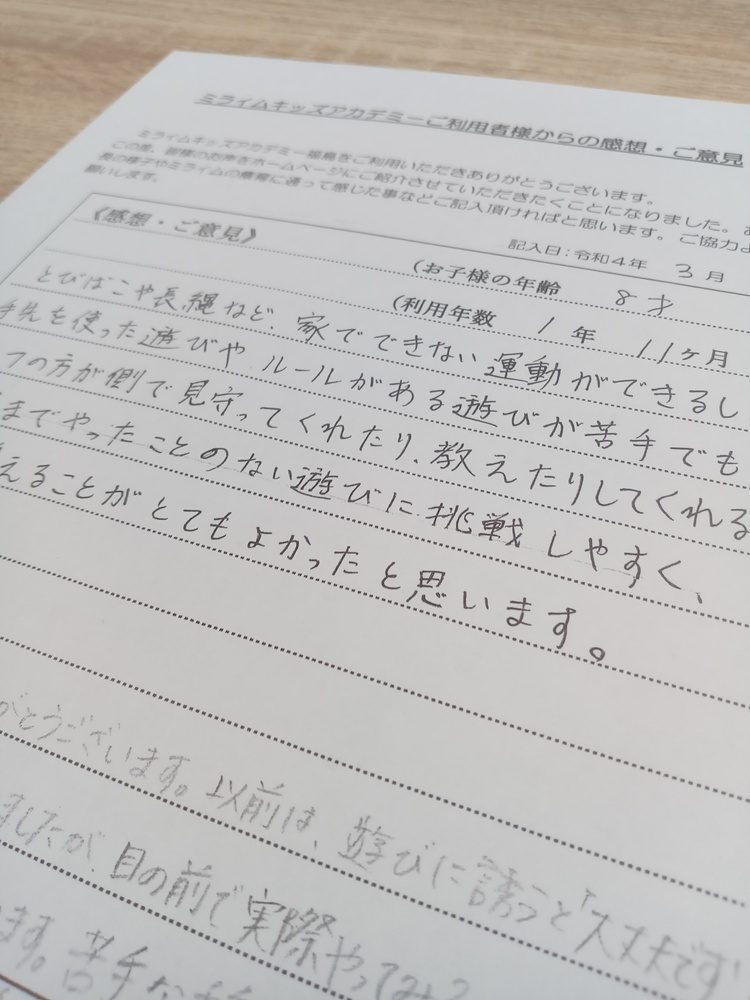 ミライムキッズアカデミーご利用者様からの感想・ご意見
ミライムキッズアカデミー福島をご利用いただきありがとうございます。
この度、皆様のお声をホームページにご紹介させていただきたくことになりました。お
様の様子やミライムの療育に通って感じた事などご記入頂ければと思います。ご協力よ
願いします。
記入日:令和4年 3月
《感想・ご意見》
(お子様の年齢 8才
(利用年数 1年 11ヶ月
とびばこや長縄など、家でできない運動ができるし
手先を使った遊びや ルールがある遊びが苦手でも
フの方が側で見守ってくれたり、教えたりしてくれる
までやったことのない遊びに挑戦しやすく、
えることがとてもよかったと思います。
がとうございます。以前は、遊びに誘うと「大丈夫です
ましたが、目の前で実際やってみ
ます。苦手な